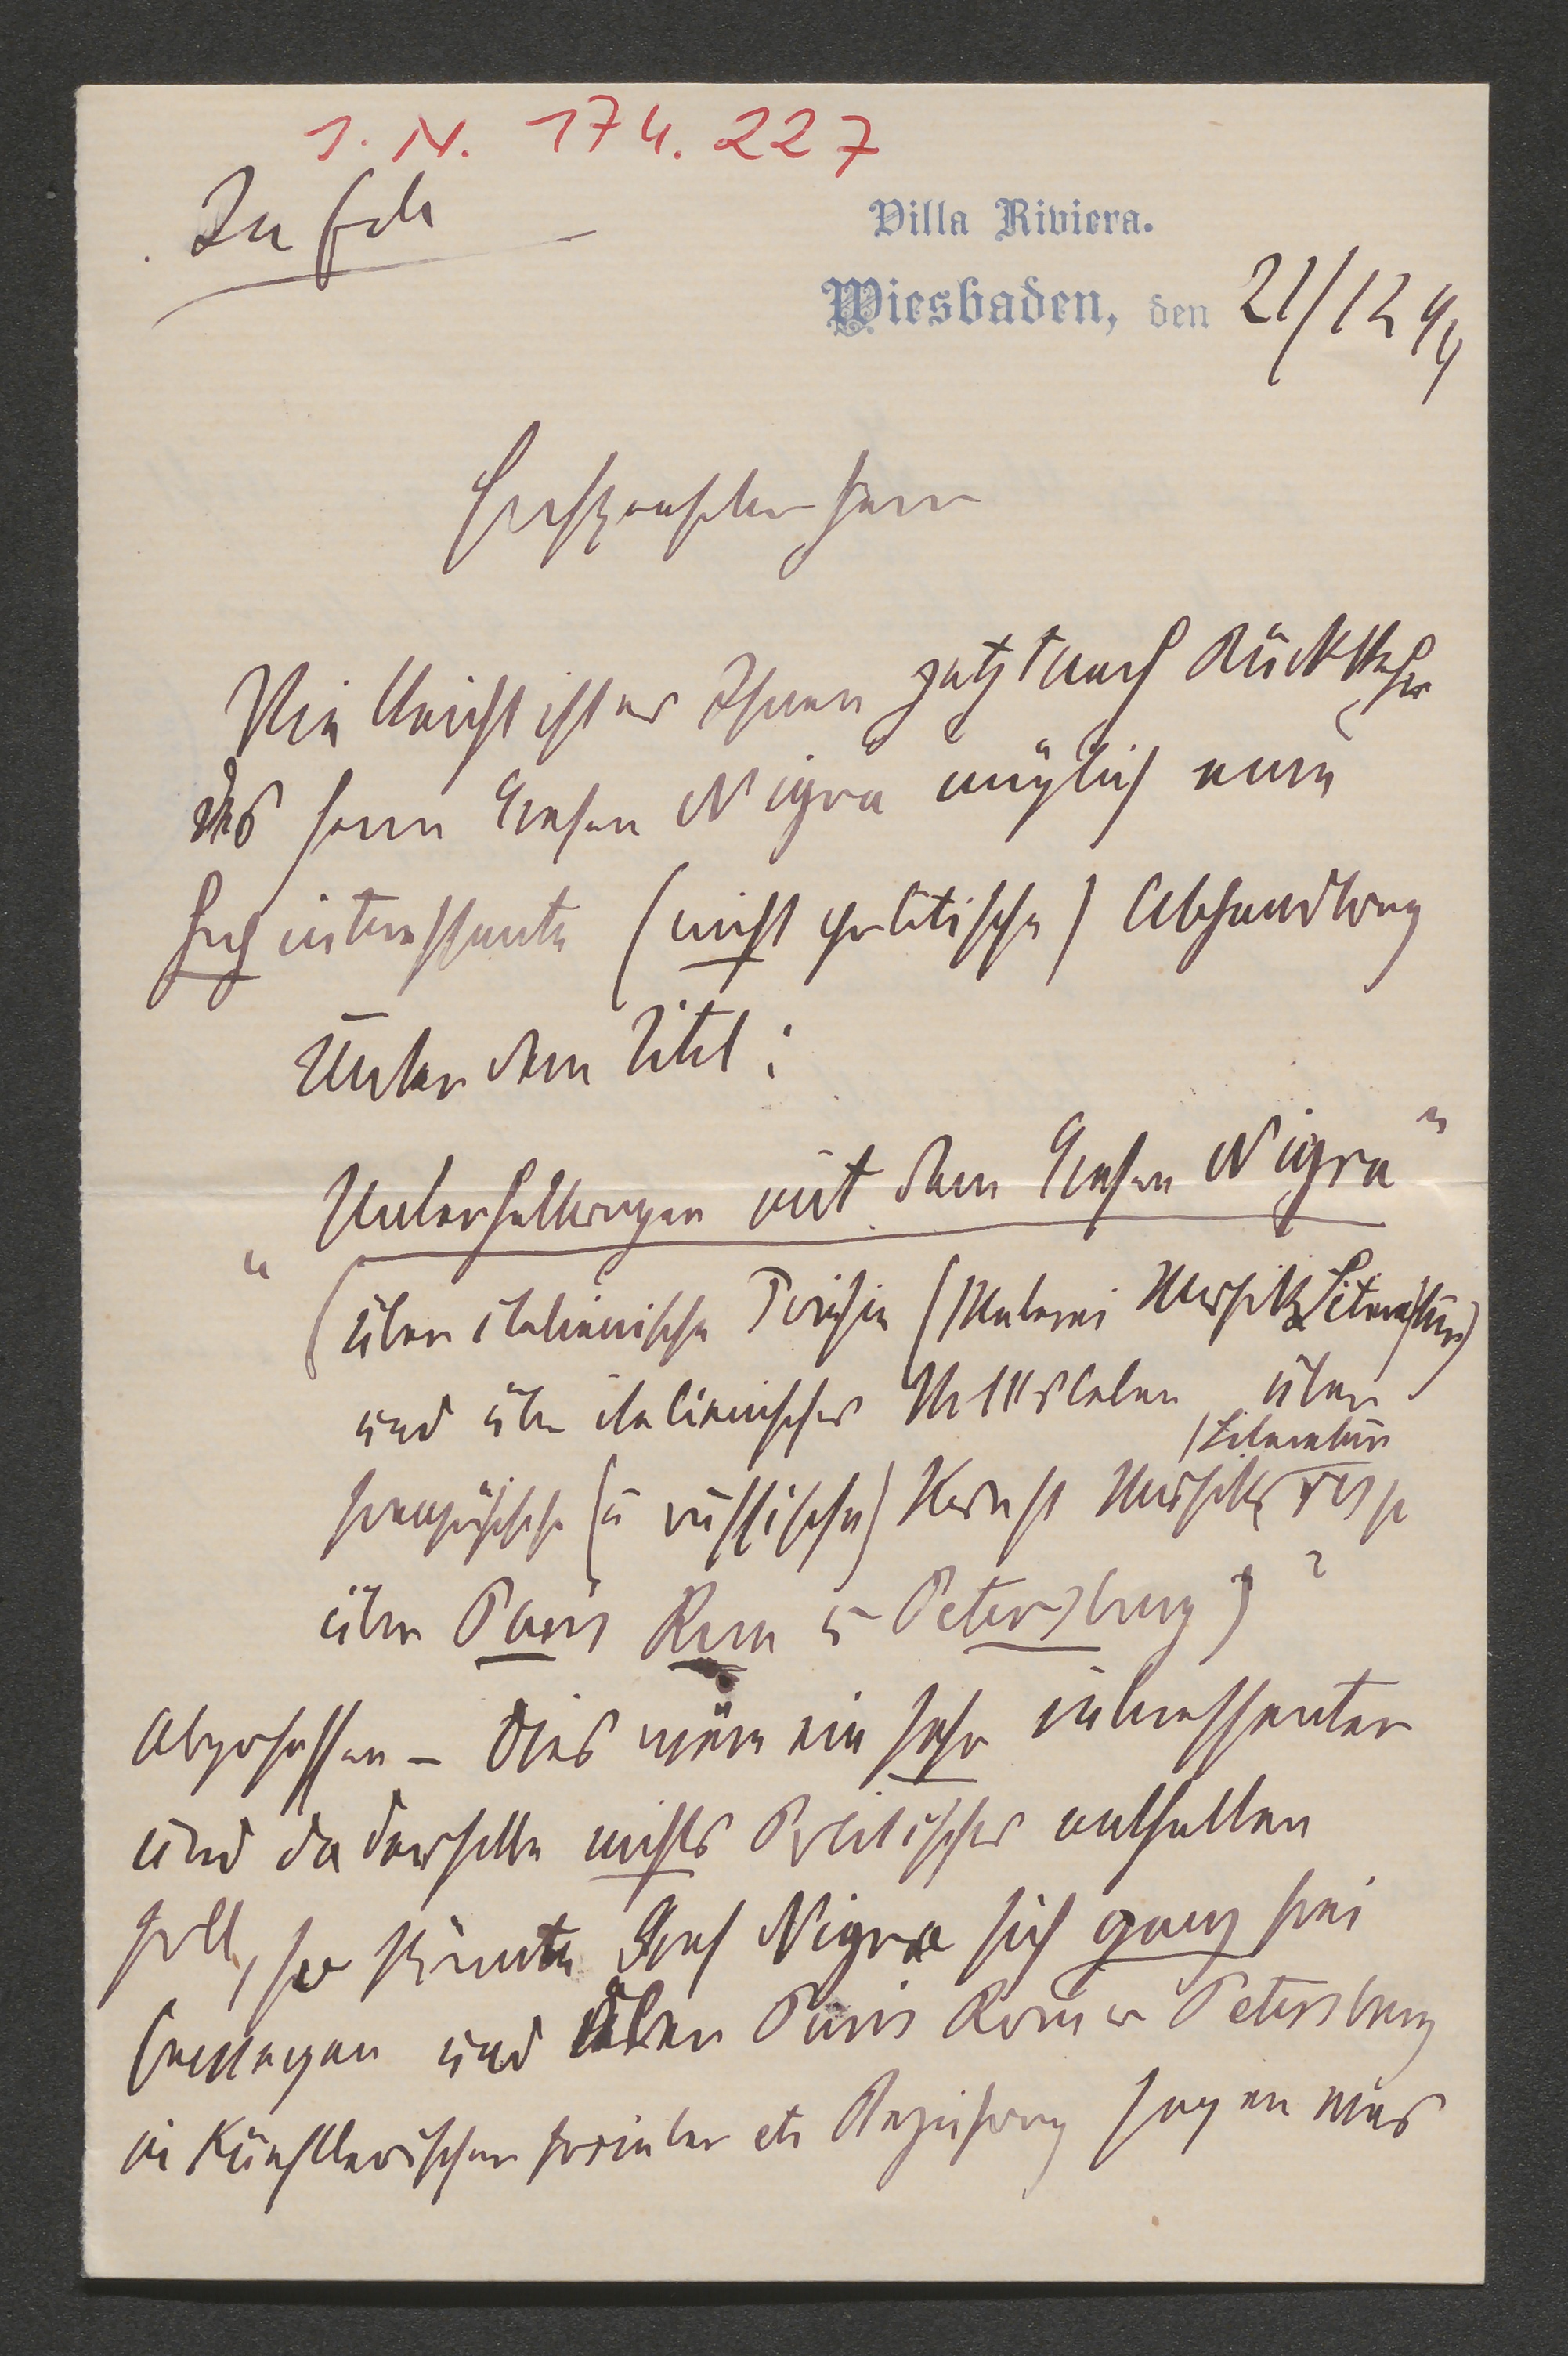 I. N. 174.227
In Eile
Villa Riviera.
Wiesbaden, den 21/12 94
Hochgeehrter Herr
Vielleicht ist es Ihnen jetzt nach Rückkehr
des Herrn Grafen Nigra möglich eine
hochinteressante (nicht politische) Abhandlung
Unter dem Titel:
„Unterhaltungen mit dem Grafen Nigra“
(über italienische Poesie (Malerei Musik & Literatur)
und über italienisches Volksleben über
französische (u russische) Kunst Musik Literatur resp
über Paris Rom u Petersburg)
abzufassen – dies wäre ein sehr interessanter
und da derselbe nichts Politisches enthalten
soll, so könnte Graf Nigra sich ganz frei
bewegen und über Paris Rom u Petersburg
in künstlerischer socialer etc Beziehung sagen was